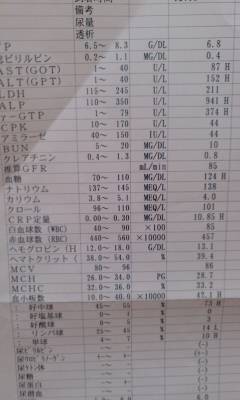 備考
尿量
透析
TP 6.5～ 8.3 G/DL 6.8
総ビリルビン 0.2～ 1.1 MG/DL 0.4
AST(GOT) 1～ 40 U/L 87 H
ALT(GPT) 1～ 40 U/L 152 H
LDH 115～ 245 U/L 211
ALP 110～ 350 U/L 941 H
γ-GTP 1～ 79 U/L 374 H
CPK 10～ 170 U/L 44
アミラーゼ 40～ 150 IU/L 44
BUN 5～ 20 MG/DL 10
クレアチニン 0.4～ 1.3 MG/DL 0.8
推算GFR mL/min/ 85
血糖 70～ 110 MG/DL 124 H
ナトリウム 137～ 145 MEQ/L 138
カリウム 3.8～ 5.1 MEQ/L 4.0
クロール 96～ 110 MEQ/L 101
CRP定量 0.00～ 0.30 MG/DL 10.85 H
白血球数 (WBC) 40～ 90 ×100 85
赤血球数 (RBC) 440～ 560 ×10000 457
ヘモグロビン (H 12.0～ 18.0 G/DL 13.1
ヘマトクリット( 38.0～ 54.0 % 39.4
MCV 80～ 98 86
MCH 26.0～ 34.0 PG 28.7
MCHC 32.0～ 36.0 % 33.2
血小板数 10.0～ 40.0 ×10000 47.1 H
好中球 45～ % 73 H
好塩基球 0～ % 0
好酸球 0～ %
リンパ球 25～ 45 % 14 L
単球 4～ 7 % 10 H
尿糖
尿蛋白
尿潜血